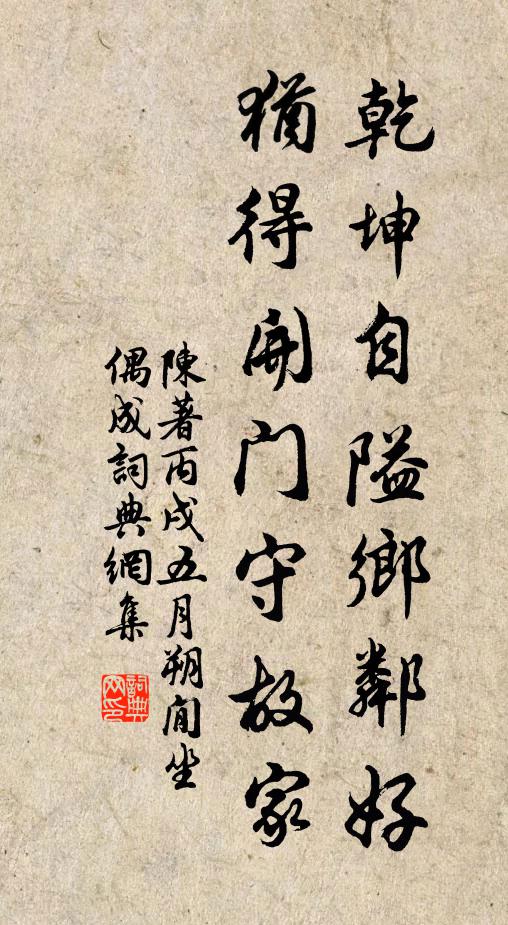 乾坤自隘鄉鄰好
猶得開門守故家
陳著丙戌五月朔閒坐
偶成詞典網集
詞典网印